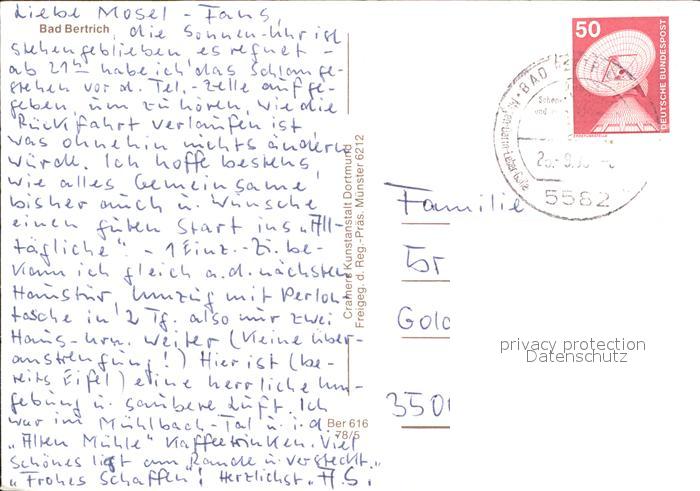 Liebe Mosel-Fans,
Bad Bertrich
die Sonnen-Uhr ist
stehengeblieben es regnet -
ab 21°° habe ich das Schlange-
stehen vor d. Tel.-Zelle aufge-
geben um zu hören, wie die
Rückfahrt verlaufen ist,
was ohnehin nichts ändern
würde. Ich hoffe bestens,
wie alles Gemeinsame
bisher auch u. wünsche
einen guten Start ins „All-
tägliche". - 1 Einz.-Zi. be-
kam ich gleich a.d. nächsten
Haustür, Umzug mit Perlon-
tasche in 2 Tg. also nur zwei
Haus-nrn. weiter (Kleine Über-
anstrengung!) Hier ist (be-
reits Eifel) eine herrliche Um-
gebung u. saubere Luft. Ich
war im Mühlbach-Tal u. i.d.
„Alten Mühle" Kaffeetrinken. Viel
Schönes liegt am „Rande u. versteckt."
„Frohes Schaffen"! Herzlichst H.S.
Cramers Kunstanstalt Dortmund
Freigeg. d. Reg.-Präs. Münster 6212
Ber 616
78/5
50
DEUTSCHE BUNDESPOST
BAD
5582
Familie
Gold
3501
privacy protection
Datenschutz